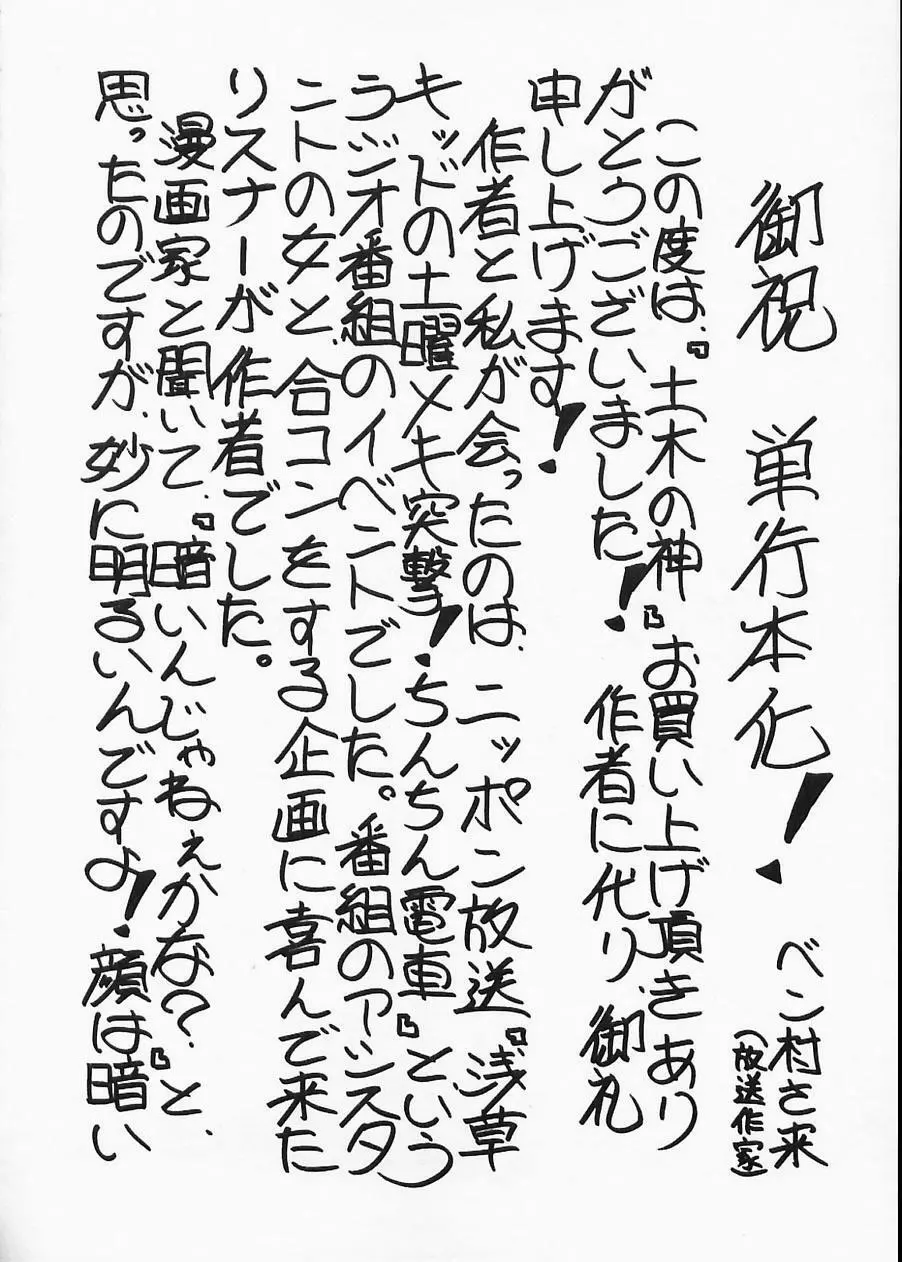 御祝　単行本化！
ベン村さ来
（放送作家）
この度は、『土木の神』お買い上げ頂きあり
がとうございました！　作者に代り、御礼
申し上げます！
作者と私が会ったのは、ニッポン放送『浅草
キッドの土曜メキ突撃！ちんちん電車』という
ラジオ番組のイベントでした。番組のアシスタ
ントの女と、合コンをする企画に喜んで来た
リスナーが作者でした。
漫画家と聞いて、『暗いんじゃねぇかな？』と、
思ったのですが、妙に明るいんですよ！顔は暗い